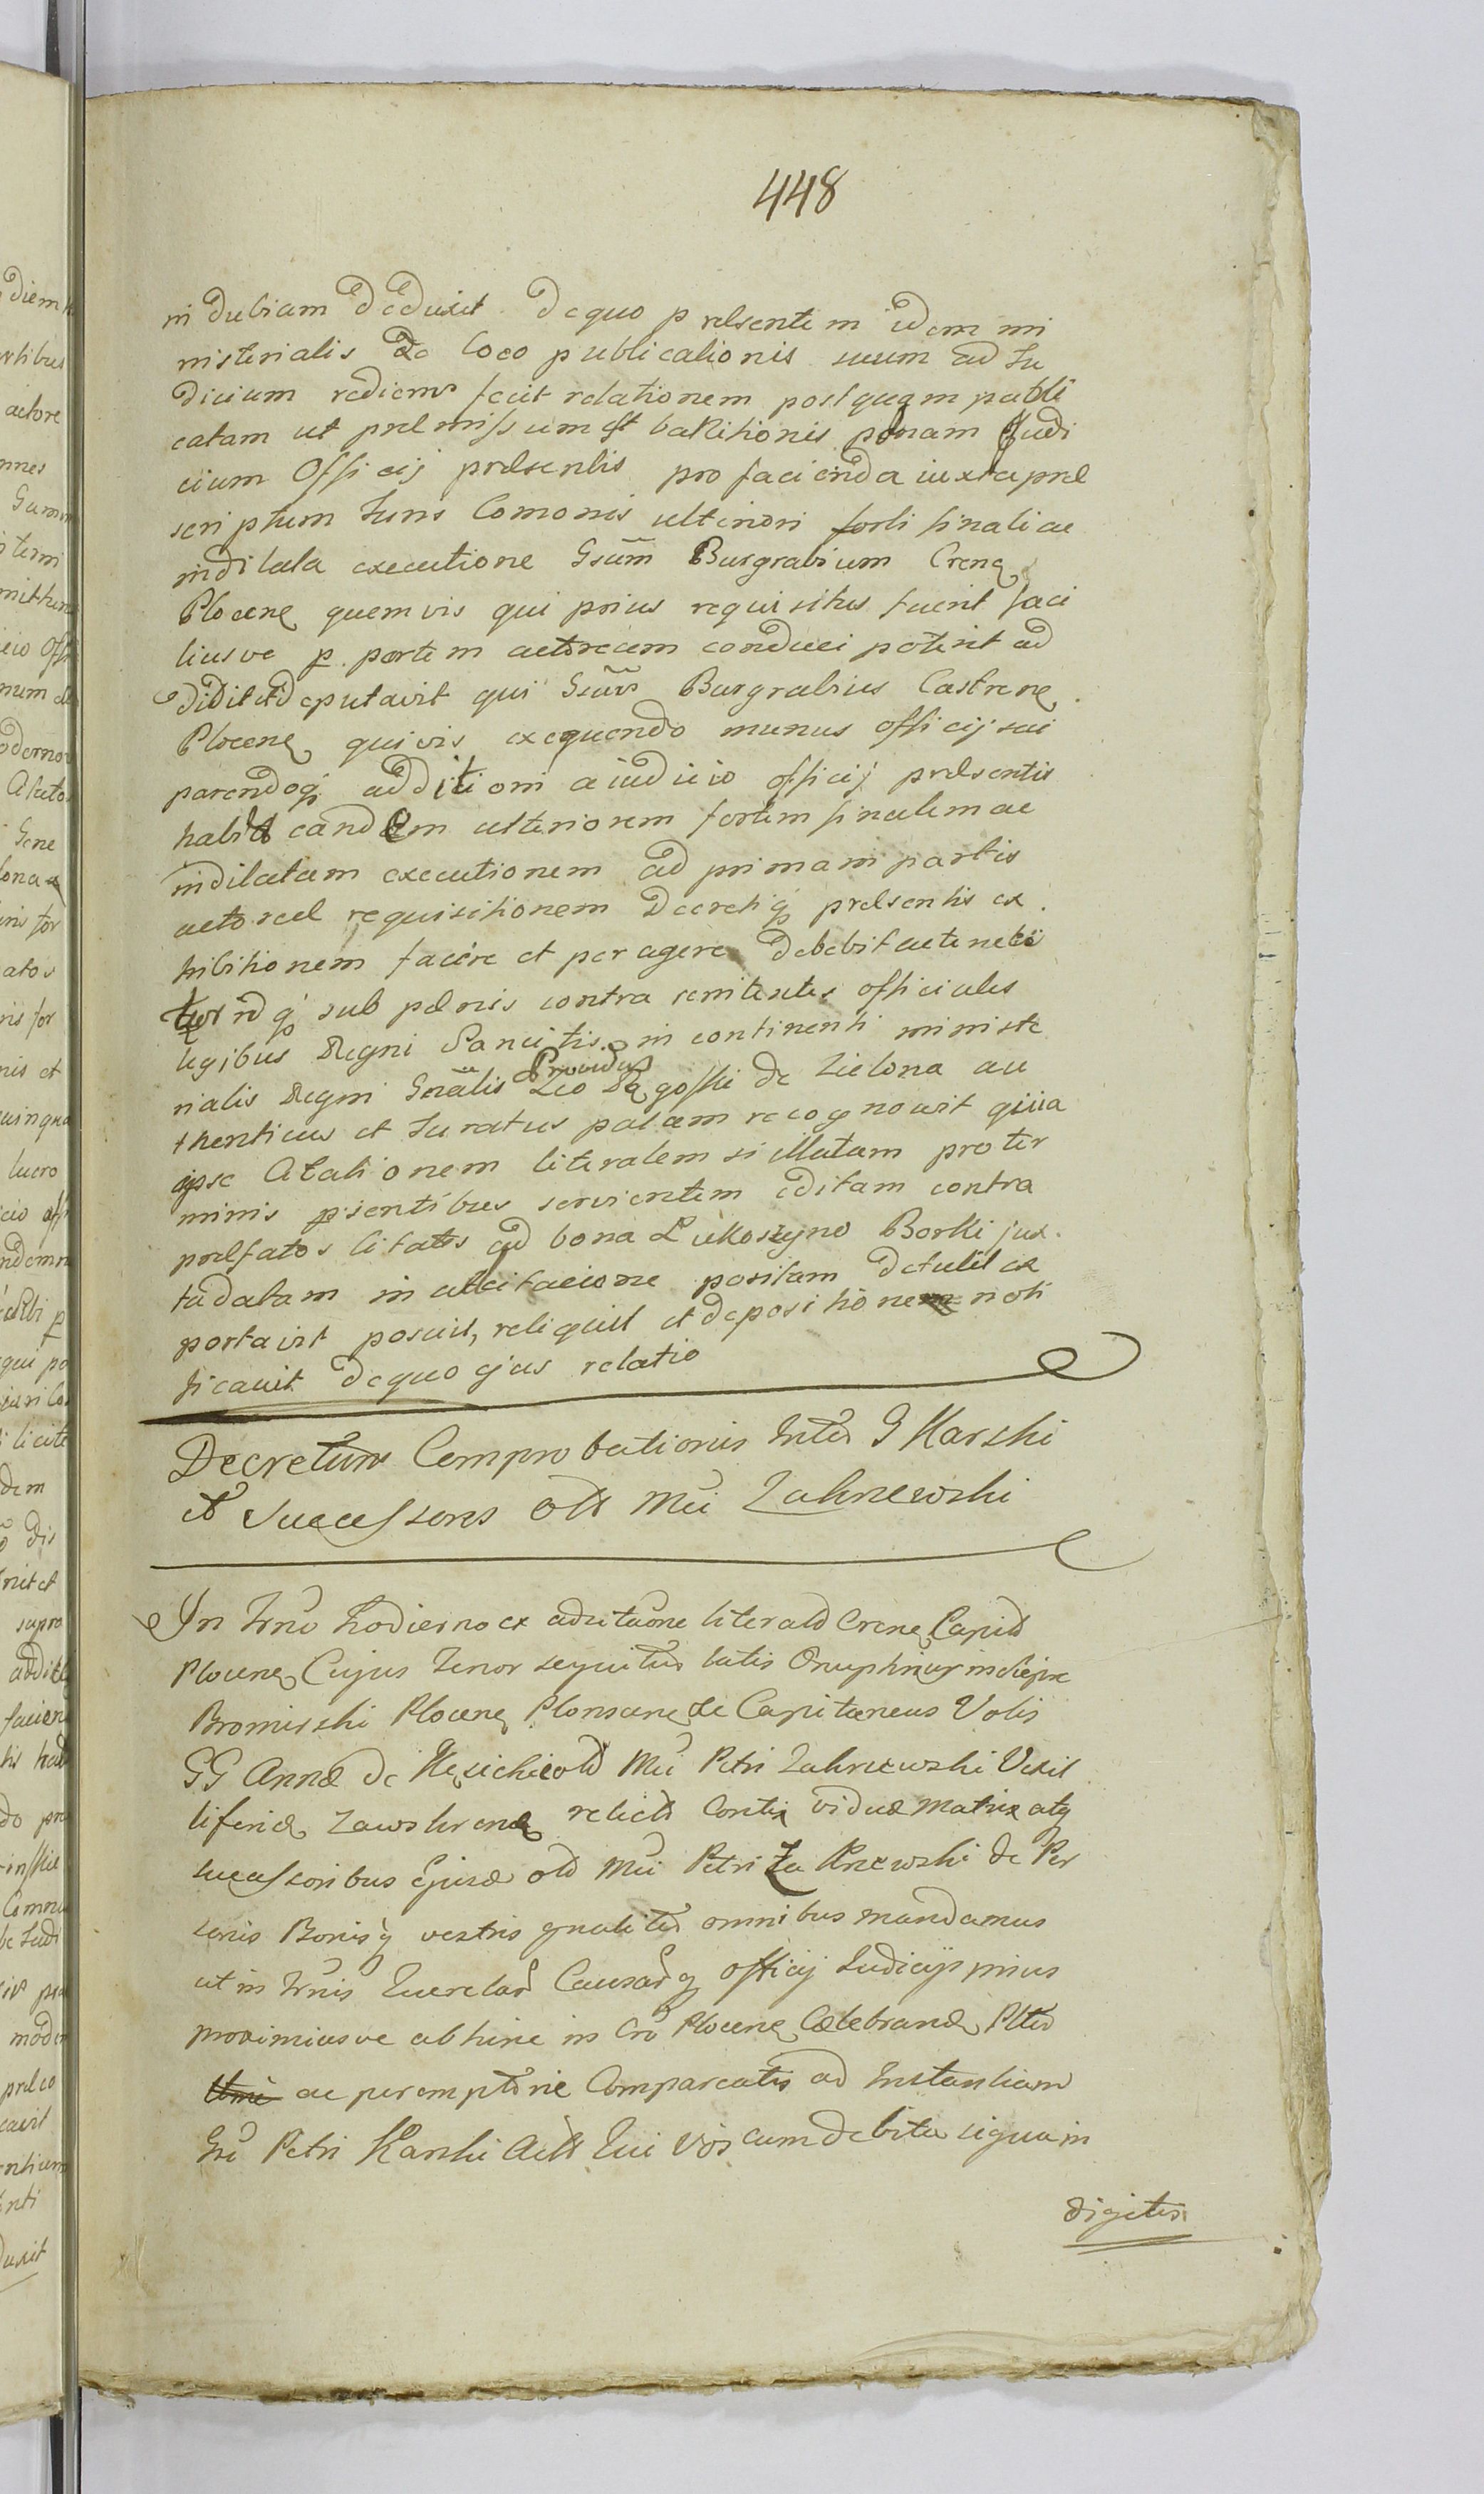 448
in dubiam deduxit de quo præsentem idem mi
nisterialis de loco publicationis suum ad Iu
dicium rediens fecit relationem postquam publi
catam ut præmissum est bannitionis pænam Iudi
cium Officij præsentis pro facienda iuxta præ
scriptum Iuris Comonis ulteriori forti finali ac
indilata executione Gsum Burgrabium Crenę
Plocenę quemvis qui prius requisitus fuerit faci
liusve p. partem actoream conduci poterit ad
didit et deputavit qui Gsus Burgrabius Castrenę
Plocenę quivis exequendo munus officij sui
parendoq; additioni a iudicio officij præsentis
habita eandem ulteriorem fortem finalem ac
indilatam executionem ad primam partis
actoreæ requisitionem Decretiq; præsentis ex
hibitionem facere et peragere debebit ac tenebi
tur idq; sub pænis contra renitentes officiales
legibus Regni Sancitis in continenti ministe
rialis Regni Gnalis Providus Leo Dęgoski de Zielona au
thenticus et Iuratus palam recognovit quia
ipse Citationem literalem sigillatam pro ter
minis psentibus servientem editam contra
præfatos citatos ad bona Łukoszyno Borki jux
ta datam in citacione positam detulit ex
portavit posuit, reliquit et depositionem noti
ficavit de quo ejus relatio
Decretum Comprobationis Inter G Karski
et Successores olt Mci Zaknewski
In Trno hodierno ex aditaone literali Crenę Capit
Plocenę Cujus Tenor sequitur talis Onuphrius in diejsce
Bromirski Plocenę Plonscenę de Capitaneus Vobis
GG Annæ de olt Mci Petri Zaknewski Vexil
liferidę Zawskrenę relictæ Contis viduæ Matrix atq
successoribus Ejusd olt Mci Petri Zaknewski de Per
sonis Bonisq vestris gnaliter omnibus mandamus
ut in Trnis Querelar Causarq officij Iudicijs prius
proximiusve abhinc in Cro Plocenę Celebrandę Pltr
ac peremptorie Compareatis ad Instantiam
Gsi Petri Karski Acts Qui Vos cum debita siquam
digetis